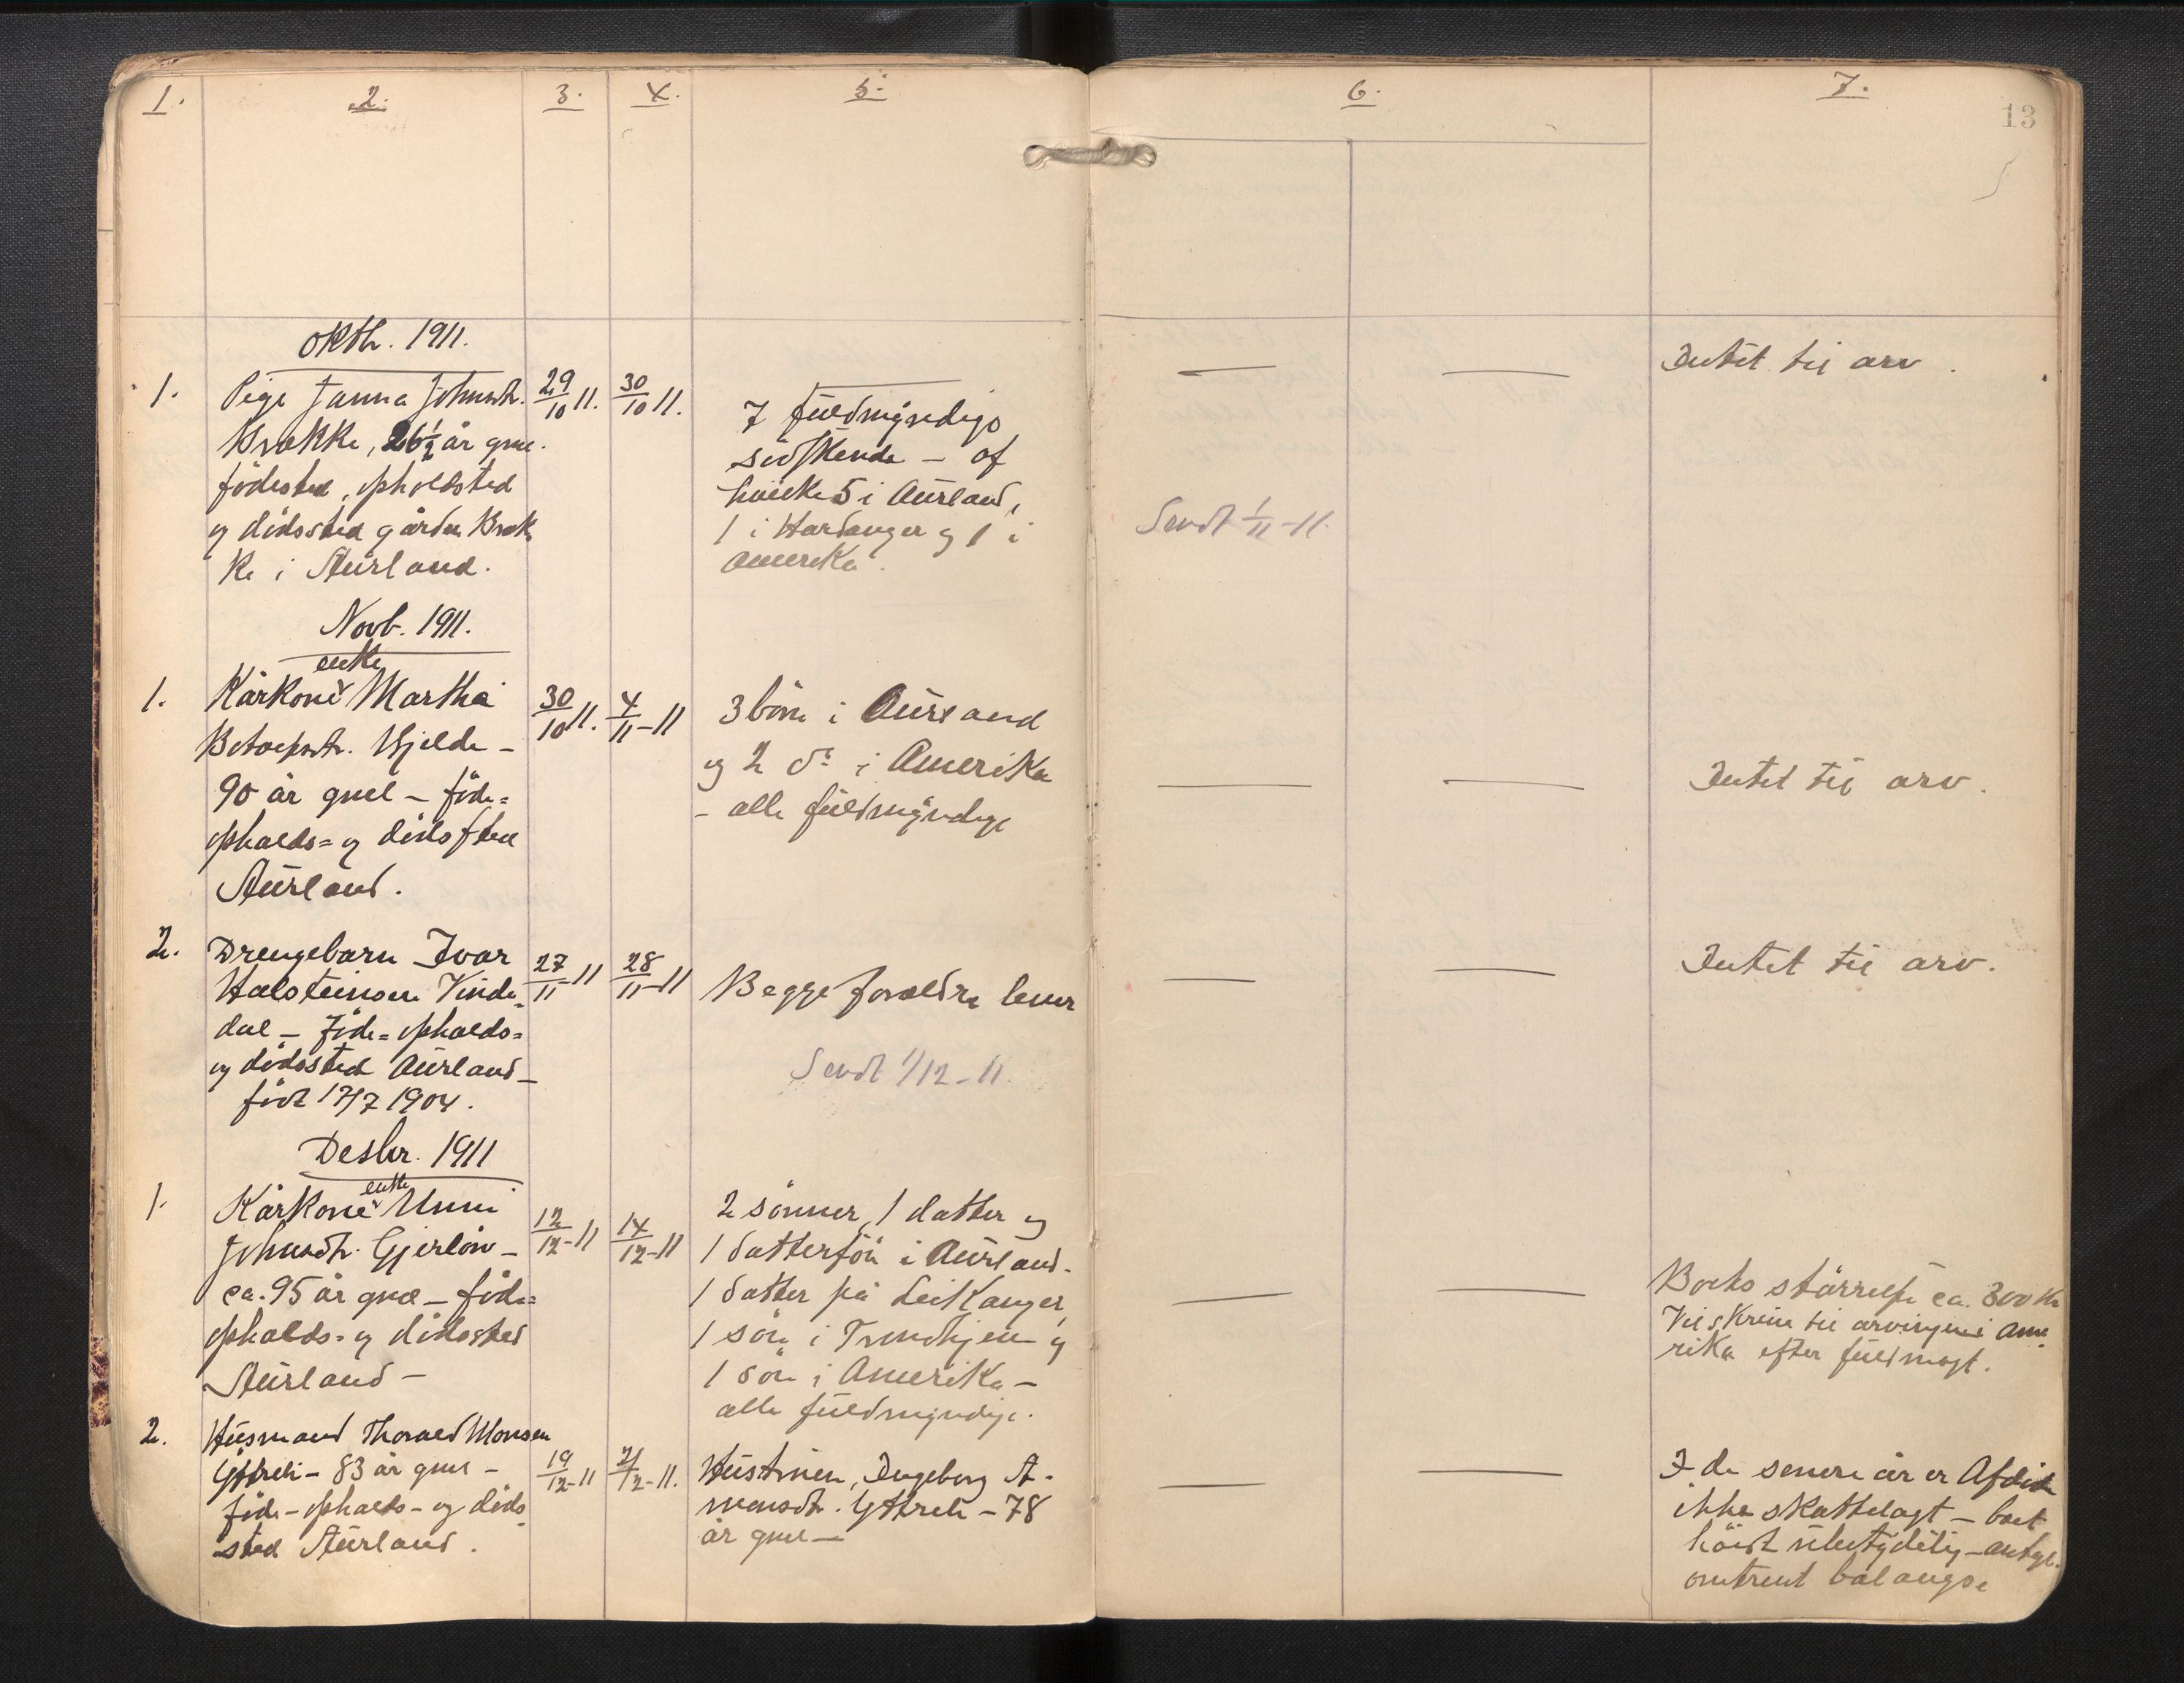 1. 2. 3. 4. 5. 6. 7.
13
Oktbr. 1911.
1.
Pige Janna Johnsdtr.
Brekke, 26½ år gml.
födested, opholdsted
og dödssted gården Brek
ke i Aurland.
29/10 11.
30/10 11.
7 fuldmyndige
södskende – af
hvilke 5 i Aurland,
1 i Hardanger og 1 i
Amerika.
Sendt 1/11-11.
Intet til arv.
Novb. 1911.
1.
enke
Kårkone Martha
Botolfsdtr. Gjelde –
90 år gml – föde=
opholds= og dödssted
Aurland.
30/10 11.
4/11-11
3 börn i Aurland
og 2 do i Amerika
– alle fuldmyndige
Intet til arv.
2.
Drengebarn Ivar
Halsteinsen Vinde
dal – föde= opholds=
og dödssted Aurland –
födt 17/7 1904.
27/11-11
28/11-11
Begge forældre lever
Sendt 1/12-11.
Intet til arv.
Desbr. 1911
1.
enke
Kårkone Unni
Johnsdtr. Gjerlöw –
ca. 95 år gml – föde=
opholds= og dödssted
Aurland –
12/12-11
14/12-11
2 sönner, 1 datter og
1 dattersön i Aurland.
1 datter på Leikanger,
1 sön i Trondhjem og
1 sön i Amerika –
alle fuldmyndige.
Boets störrelse ca. 300 Kr
Vil skrive til arvingen i Ame
rika efter fuldmagt.
2.
Husmand Thorald Monsen
Yttreli – 83 år gml –
föde – opholds – og döds
sted Aurland.
19/12-11
21/12-11.
Hustruen, Ingeborg A-
mensdtr. Yttreli – 78
år gml –
I de senere år er Afdöde
ikke skattelagt – boet
höist ubetydelig –
omtrent balangse